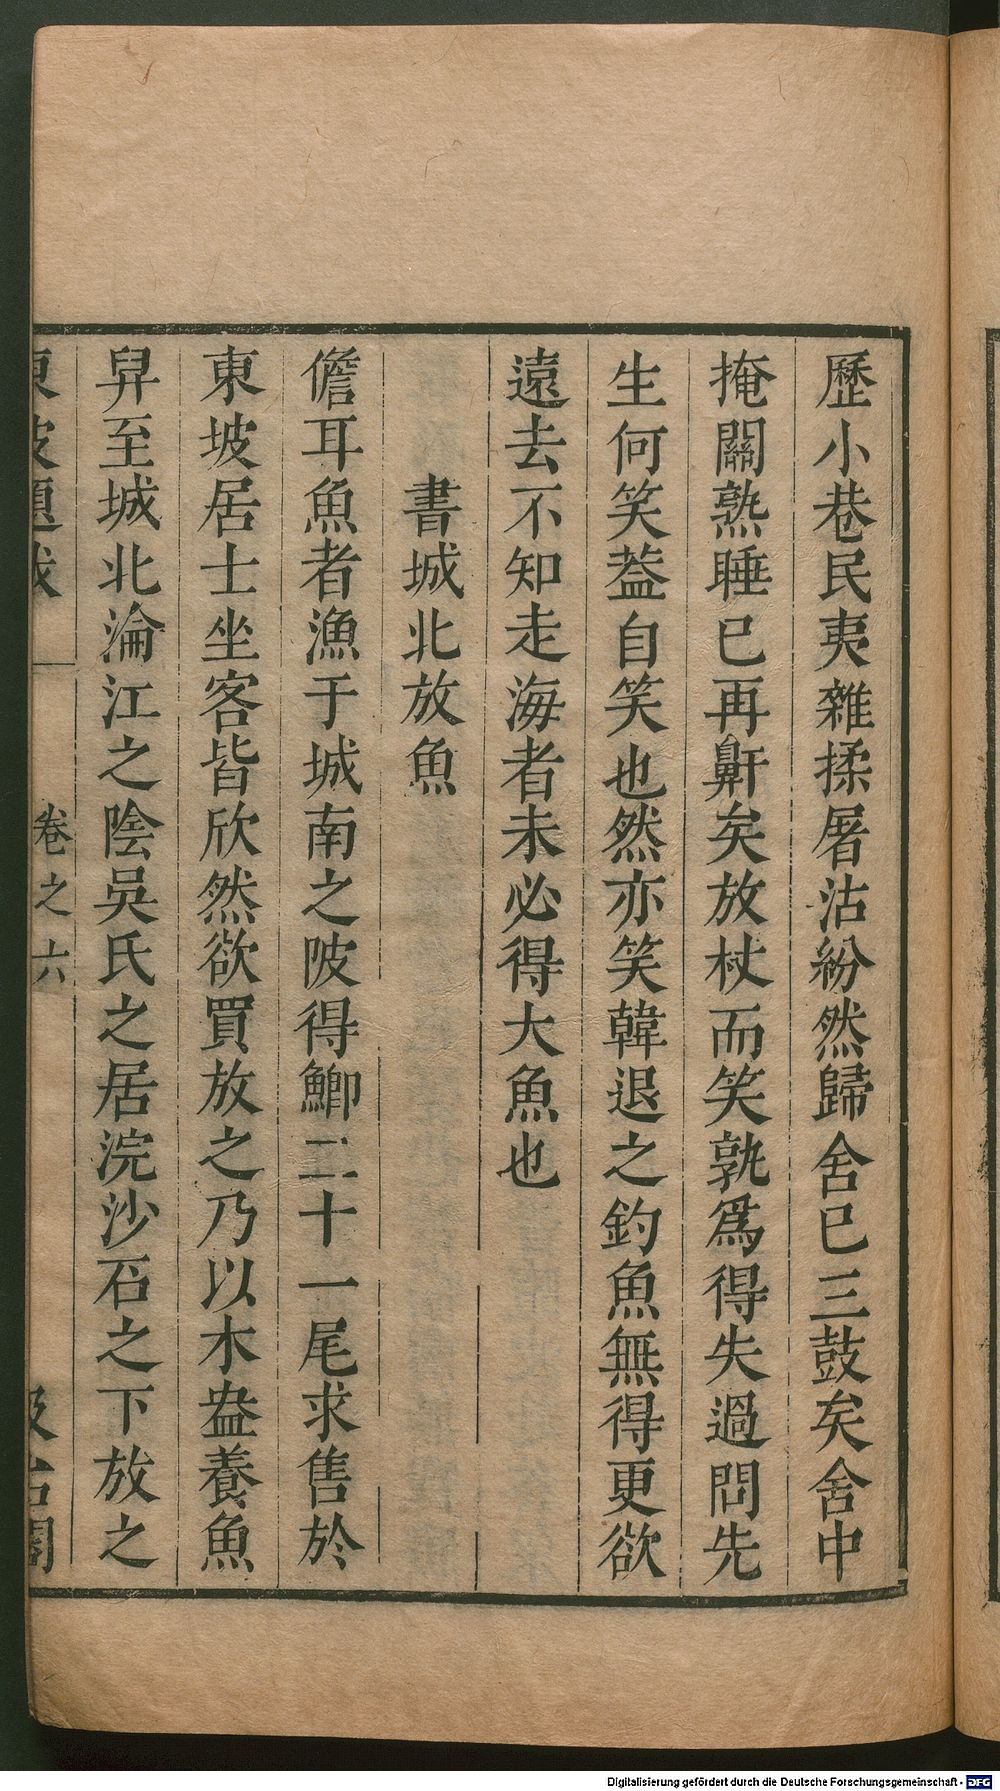 歷小巷民夷雜揉屠沽紛然歸舍已三鼓矣舍中
掩關熟睡已再鼾矣放杖而笑孰爲得失過問先
生何笑葢自笑也然亦笑韓退之釣魚無得更欲
遠去不知走海者未必得大魚也
書城北放魚
儋耳魚者漁于城南之陂得鯽二十一尾求售於
東坡居士坐客皆欣然欲買放之乃以木盎養魚
舁至城北淪江之陰吳氏之居浣沙石之下放之
東坡題跋 卷之六 汲古閣
Digitalisierung gefördert durch die Deutsche Forschungsgemeinschaft - DFG